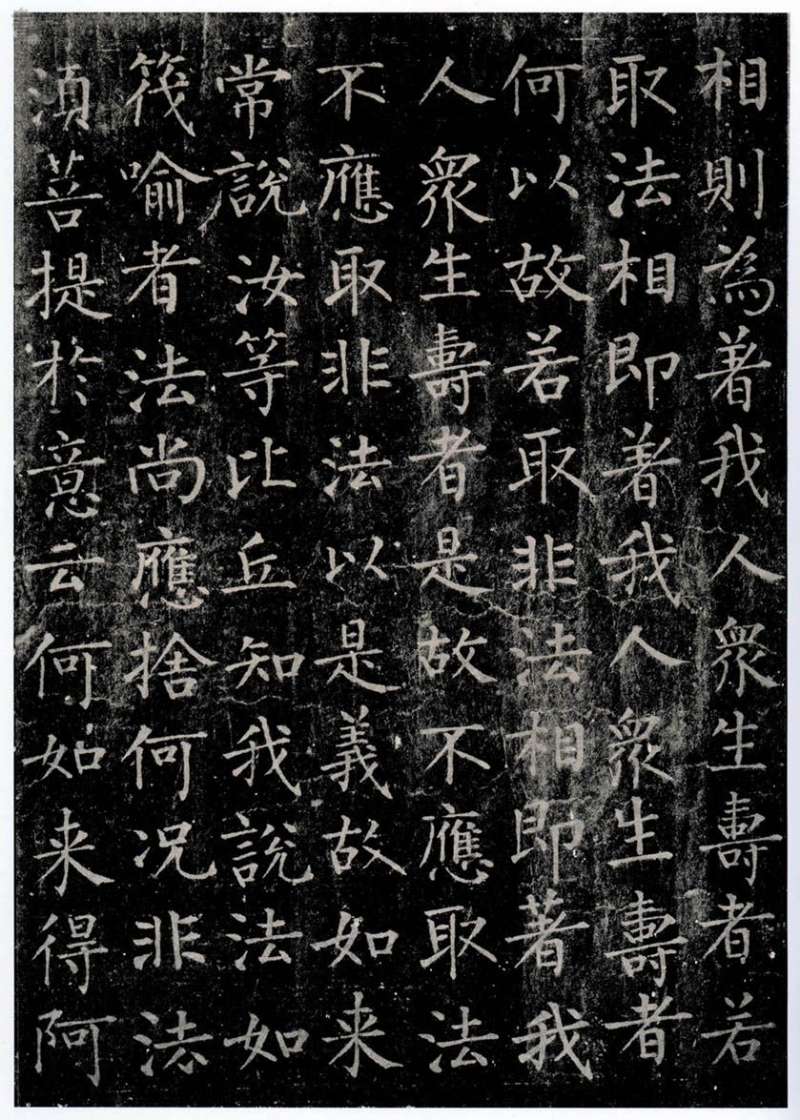 相則為著我人衆生壽者若
取法相即著我人衆生壽者
何以故若取非法相即著我
人衆生壽者是故不應取法
不應取非法以是義故如来
常說汝等比丘知我說法如
筏喻者法尚應捨何況非法
湏菩提於意云何如来得阿